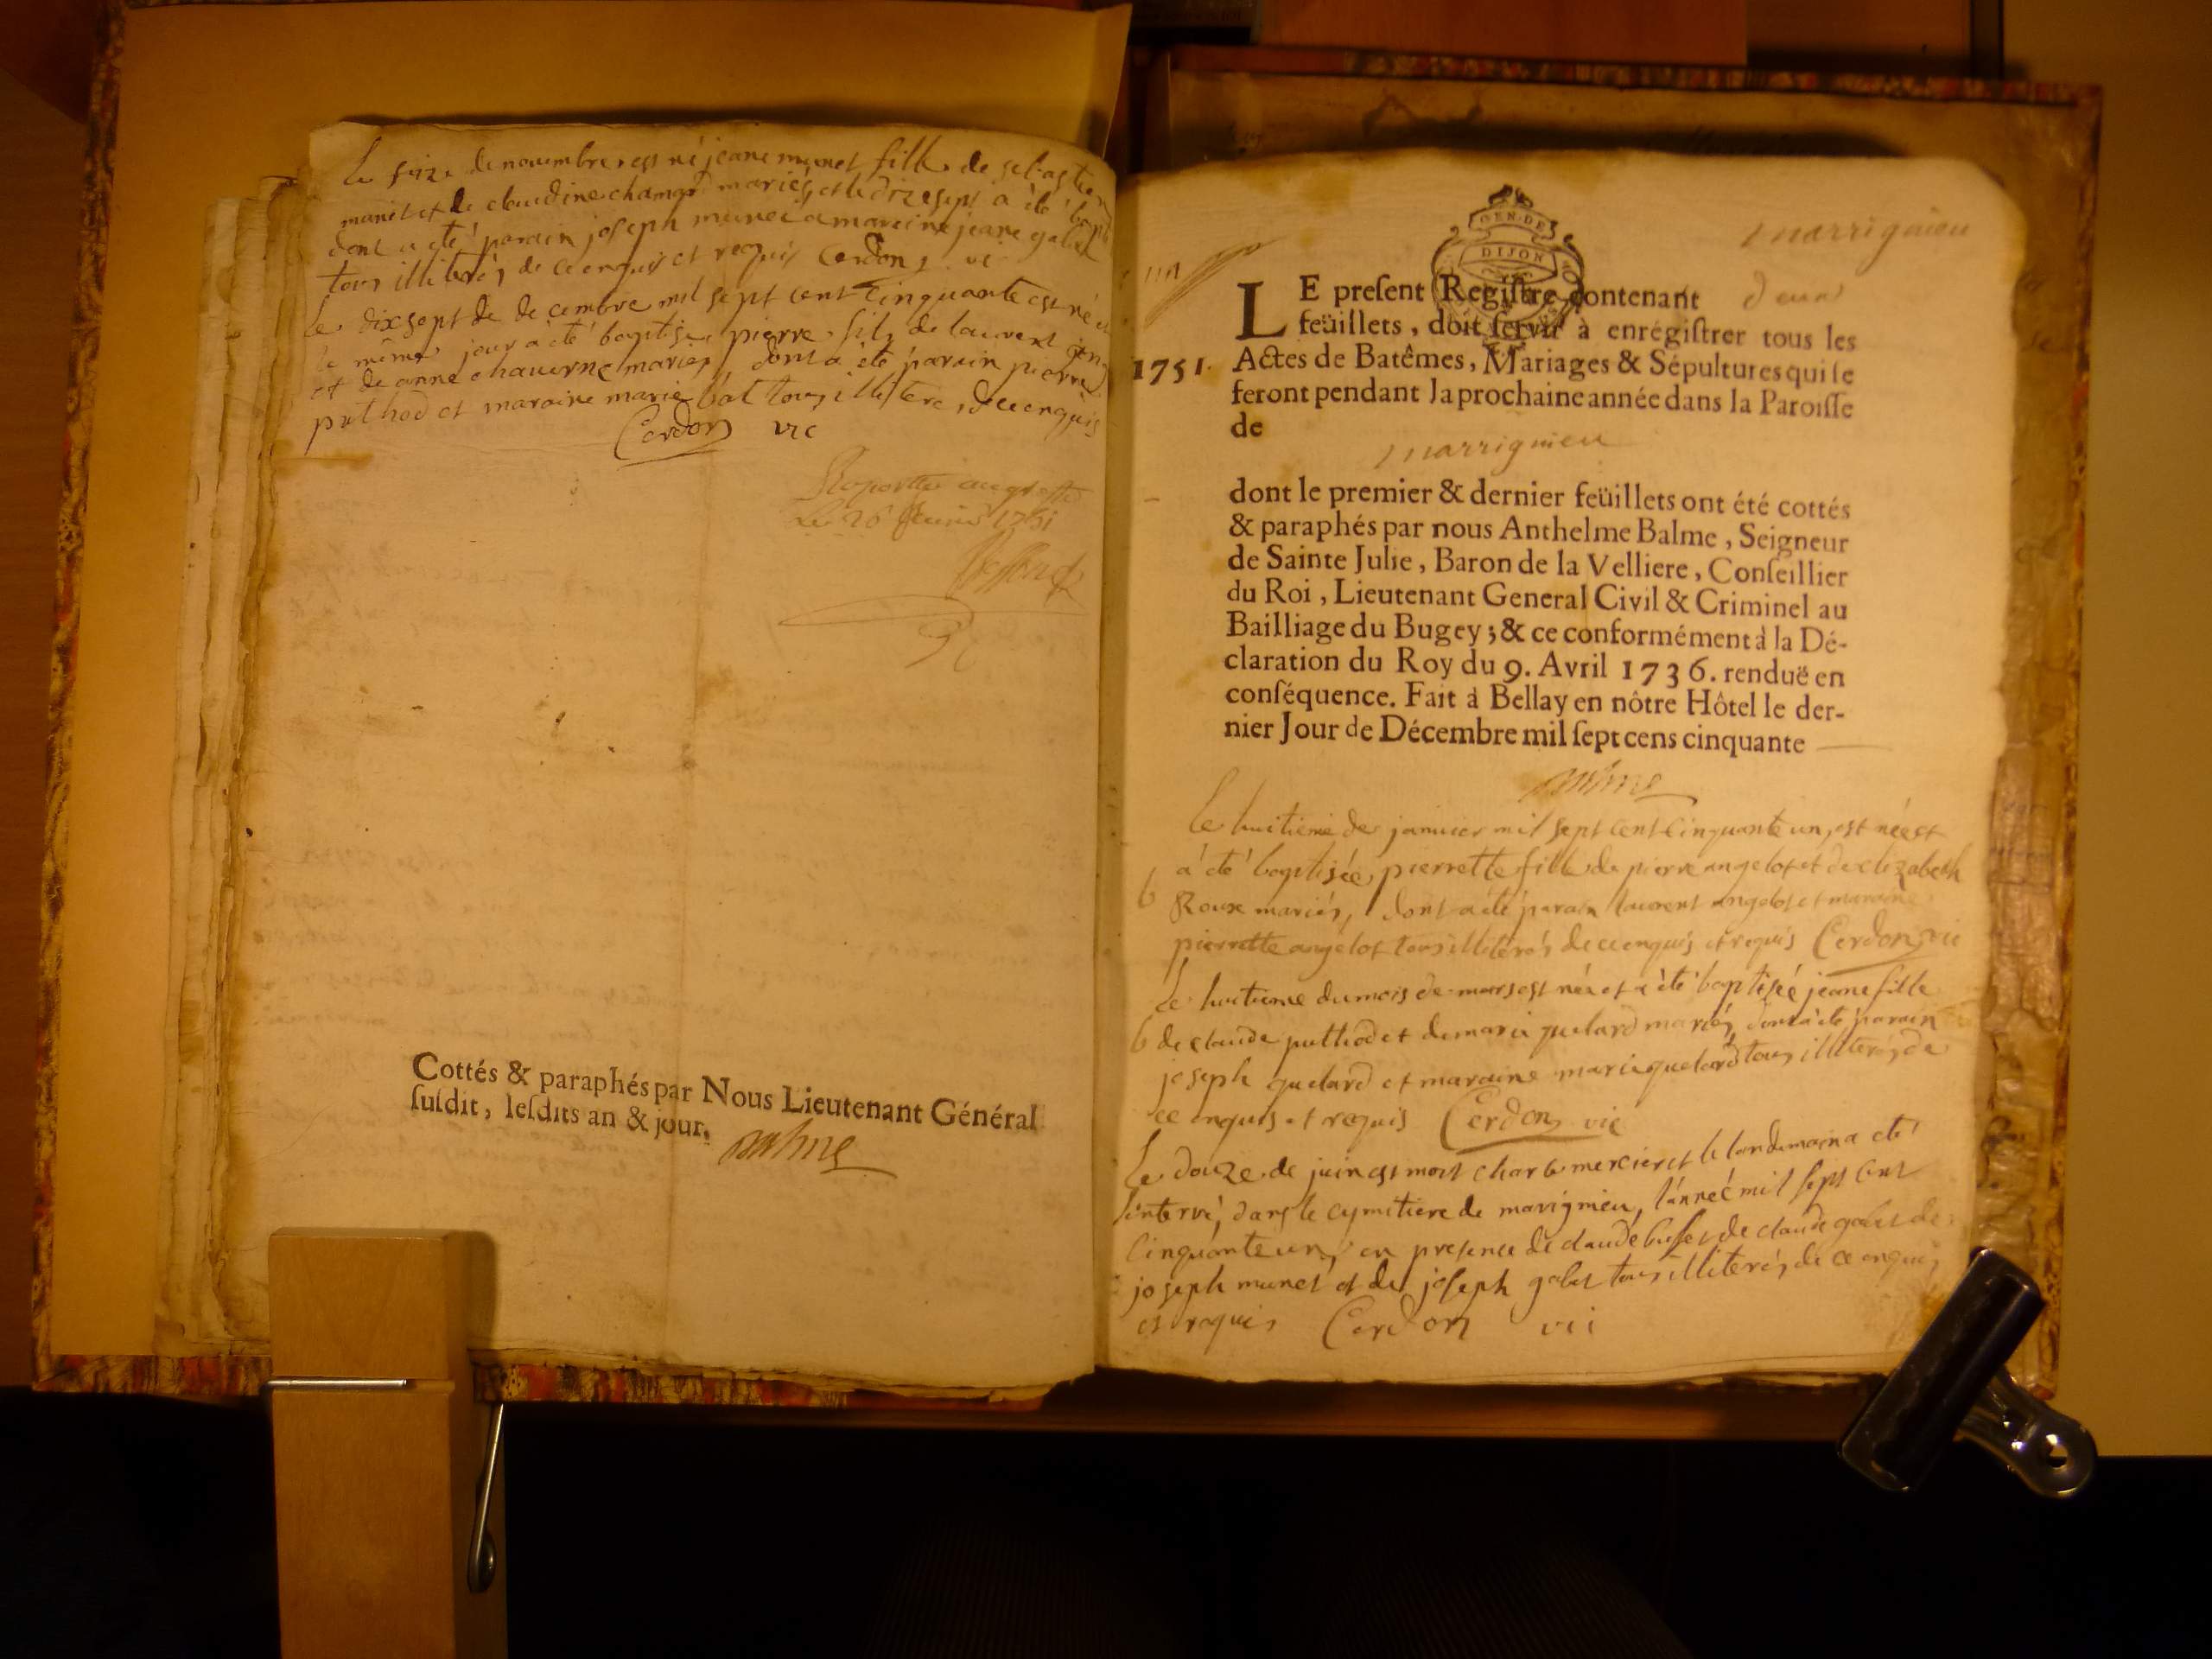 Le seize de novembre est né jeane munet fille de sebastien
munet et de claudine champ mariés, et le dizesept a été bapt
dont a été parain joseph munet a maraine jeane galet
tous illiterés de ce enquis et requis Cerdon vi
Le dixsept de decembre mil sept cent cinquante est né et
le même jour a été baptisé pierre fils de laurent
et de anne chaverne mariés, dont a été parain pierre
puthod et maraine marie bal tous illitere, de ce enquis
Cerdon vic
Raporttée au greffe
Le 26 feuvrier 1751
Cottés & paraphés par Nous Lieutenant Général
ſuſdit, leſdits an & jour.
Balme
marrignieu
LE preſent Regiſtre contenant deux
GEN·DE
DIJON
feüillets, doit ſervir à enrégiſtrer tous les
1751. Actes de Batêmes, Mariages & Sépultures qui ſe
feront pendant la prochaine année dans la Paroiſſe
de
marrignieu
dont le premier & dernier feüillets ont été cottés
& paraphés par nous Anthelme Balme, Seigneur
de Sainte Julie, Baron de la Velliere, Conſeillier
du Roi, Lieutenant General Civil & Criminel au
Bailliage du Bugey; & ce conformément à la Dé-
claration du Roy du 9. Avril 1736. renduë en
conſéquence. Fait à Bellay en nôtre Hôtel le der-
nier Jour de Décembre mil ſept cens cinquante
Balme
Le huitieme de janvier mil sept cent cinquante un, est née et
a été baptisée pierrette fille de pierre angelot et de elizabeth
b Roux mariés, dont a été parain laurent angelot et maraine
pierrette angelot tous illiterés de ce enquis et requis Cerdon vic
Le huitieme du mois de mars est née et a été baptisée jeane fille
b de claude puthod et de marie quelard mariés, dont a été parain
joseph quelard et maraine marie quelard tous illiterés de
ce enquis et requis Cerdon vic
Le douze de juin est mort charle mercier et le landemain a été
enterré, dans le cymitiere de marignieu, l'année mil sept cent
cinquante un, en presence de claude buffet de claude galet de
joseph munet et de joseph galet tous illiterés, de ce enquis
et requis Cerdon vic